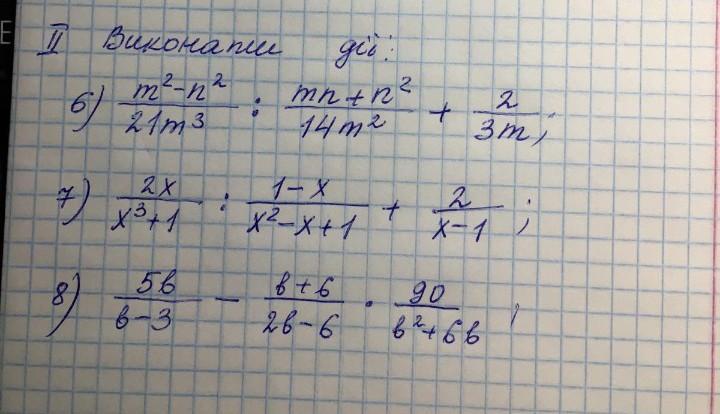 II Виконати дії:
6) (m²-n²)/(21m³) : (mn+n²)/(14m²) + 2/(3m);
7) (2x)/(x³+1) : (1-x)/(x²-x+1) + 2/(x-1);
8) (5в)/(в-3) - (в+6)/(2в-6) · 90/(в²+6в);